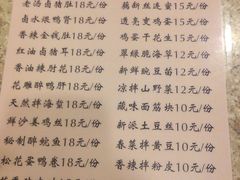 老汤卤猪肚18元/份
卤水煨鸭胗18元/份
香辣金钱肚18元/份
红油卤猪耳18元/份
香油辣肘花18元/份
花雕醉鸭肝18元/份
天然拌海蜇18元/份
鲜沙姜鸡丝18元/份
秘制醉鱿鱼18元/份
松花蛋鸭卷18元/份
藕新丝连蜜15元/份
透亮变鸡蛋15元/份
鸡蛋干花生15元/份
翠绿脆海草12元/份
新鲜豌豆苗12元/份
凉拌山野菜12元/份
藏味面筋块10元/份
新派土豆丝10元/份
春菜拌黄豆10元/份
香辣拌粉皮10元/份